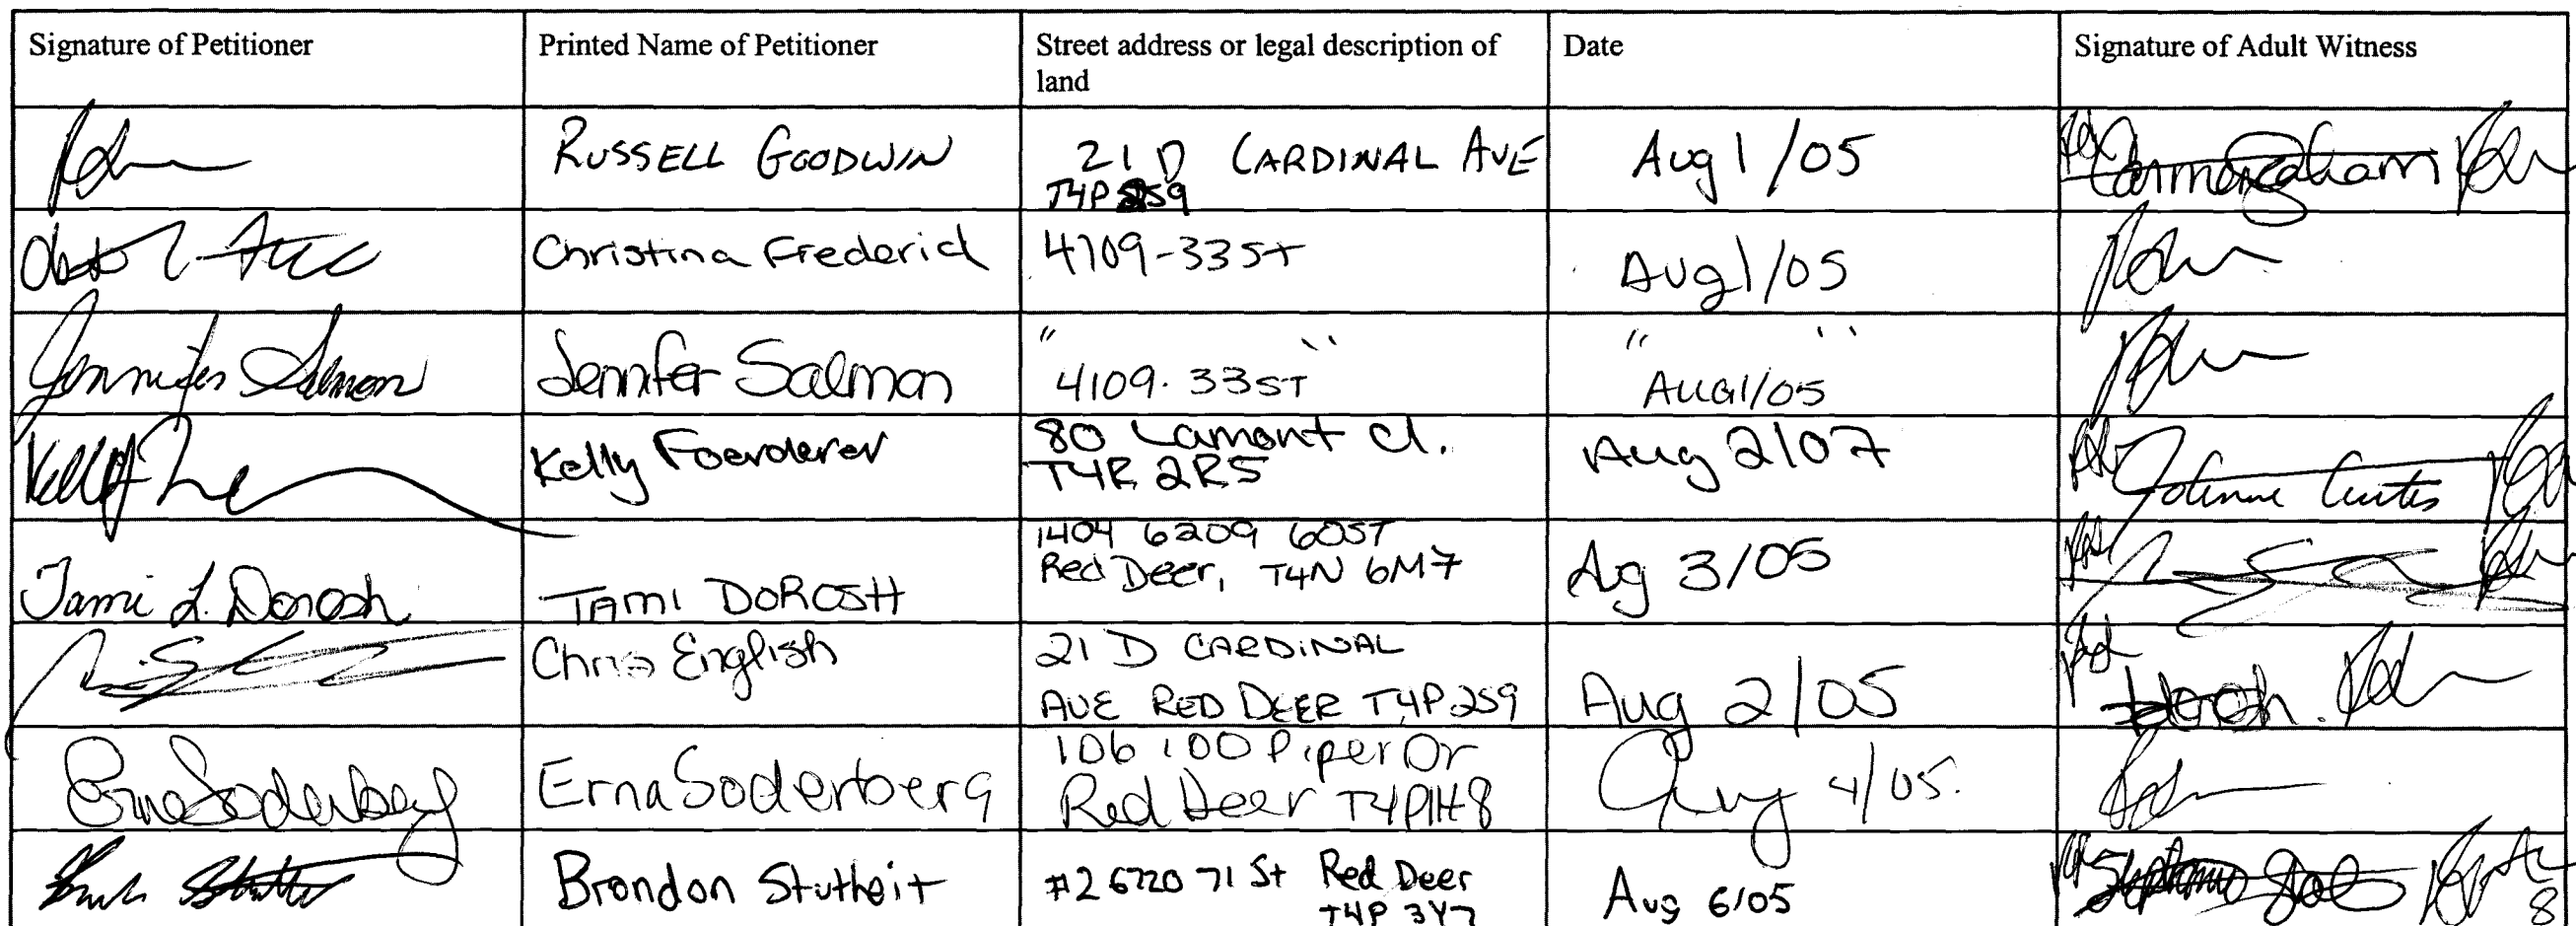 Signature of Petitioner
Printed Name of Petitioner
Street address or legal description of
land
Date
Signature of Adult Witness
RUSSELL GOODWIN
21 D CARDINAL AVE
T4P 2S9
Aug 1/05
Christina Frederick
4109-33ST
Aug 1/05
Jennifer Salmon
Jennifer Salmon
" "
4109. 33ST
" "
AUG1/05
Kelly
Kelly Foerderer
80 Lamont Cl.
T4R 2R5
Aug 2/07
Tami L. Dorosh
TAMI DOROSH
1404 6209 60ST
Red Deer, T4N 6M7
Ag 3/05
Chris English
21 D CARDINAL
AVE RED DEER T4P2S9
Aug 2/05
Dorosh
Erna Soderberg
Erna Soderberg
106 100 Piper Dr
Red Deer T4P1H8
Aug 4/05.
Brandon Stutheit
#2 6720 71 St Red Deer
T4P 3Y7
Aug 6/05
8